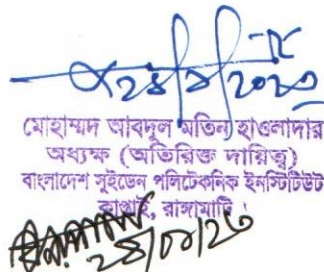 ২৪/৮/২০২৩
মোহাম্মদ আবদুল মতিন হাওলাদার
অধ্যক্ষ (অতিরিক্ত দায়িত্ব)
বাংলাদেশ সুইডেন পলিটেকনিক ইনস্টিটিউট
কাপ্তাই, রাঙ্গামাটি।
২৪/০৮/২৩